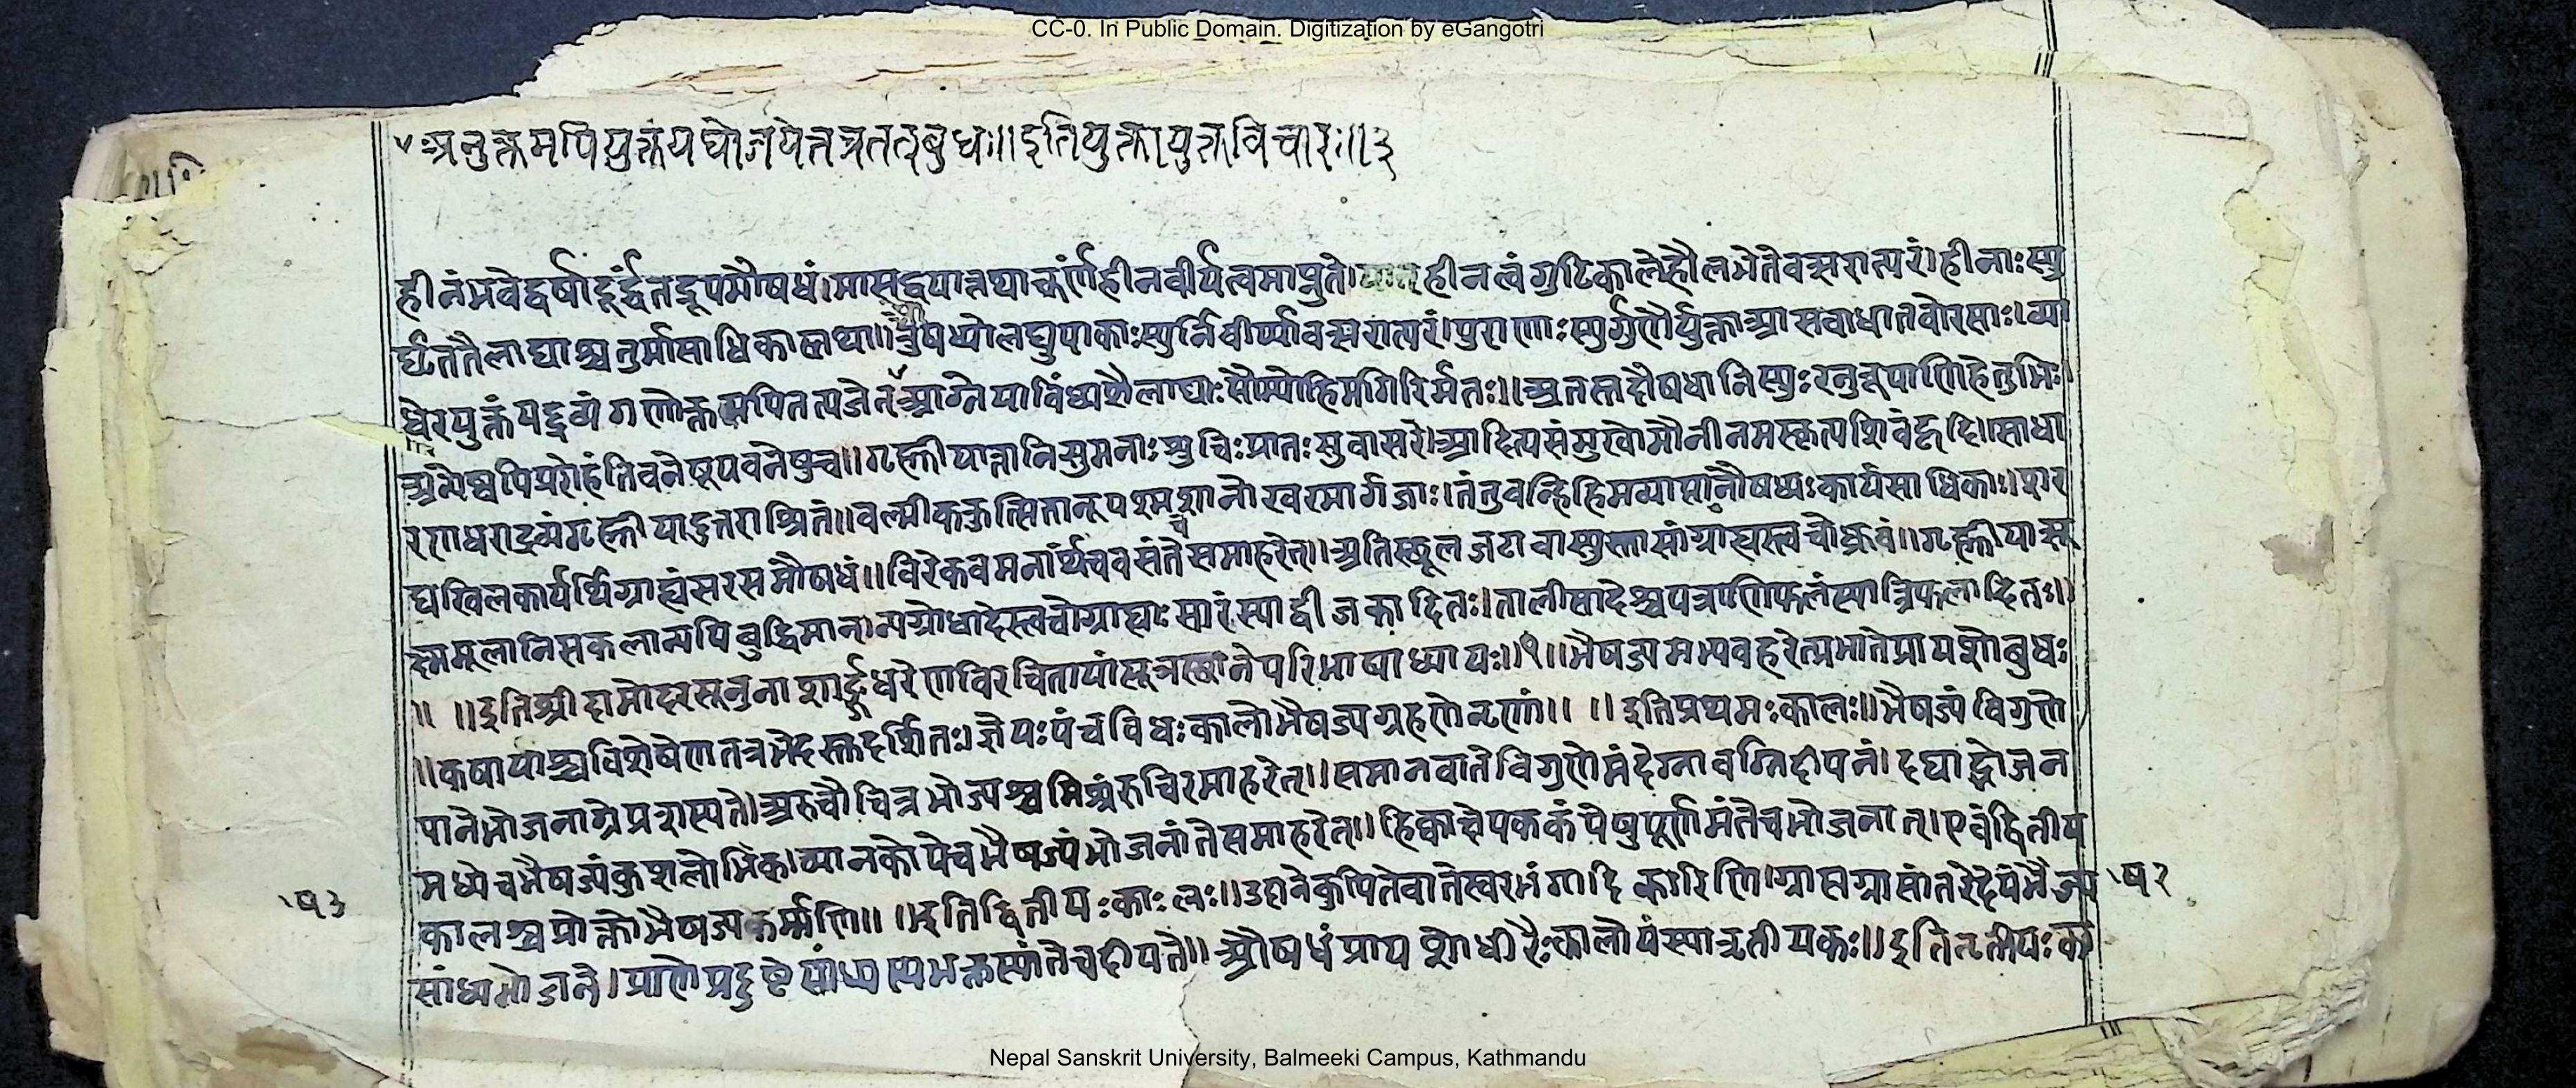 CC-0. In Public Domain. Digitization by eGangotri
अनुक्तमपियुक्तंयद्योजयेत्तत्रतत्बुधः॥इतियुक्तायुक्तविचारः॥३
हीनंभवेद्वर्षादूर्द्धंतद्रूपमौषधं।मासद्वयात्तथाचूर्णंहीनवीर्यत्वमाप्नुते। हीनत्वंगुटिकालेहौलभेतेवत्सरात्परं।हीनाःस्यु
र्घृततैलाद्याश्चतुर्मासाधिकास्तथा॥ओषध्योलघुपाकाःस्युर्निर्वीर्य्यावत्सरात्परं।पुराणाःस्युर्गुणैर्युक्ताआसवाधातवोरसाः।व्या
धेरयुक्तंयद्द्रव्यंगणोक्तमपितत्यजेत्आग्नेयाविंध्यशैलाद्याःसौम्योहिमगिरिर्मतः॥अतस्तदौषधानिस्युःरनुरूपाणिहेतुभिः।
अन्येष्वपिप्ररोहंतिवनेषूपवनेषुच॥गृह्णीयात्तानिसुमनाःशुचिःप्रातःसुवासरे।आदित्यसंमुखोमौनीनमस्कृत्यशिवंहृदि।साधा
रणधराद्रव्यंगृह्णीयादुत्तराश्रितं॥वल्मीककुत्सितानूपश्मशानोखरमार्गजाः।जंतुवह्निहिमव्याप्तानौषध्यःकार्यसाधिकाः।शर
द्यखिलकार्यर्थिंग्राह्यंसरसमौषधं॥विरेकवमनार्थंचवसंतेसमाहरेत्॥अतिस्थूलजटायास्युस्तासांग्राह्यस्त्वचोध्रुवं॥गृह्णीयात्सू
क्ष्ममूलानिसकलान्यपिबुद्धिमान्।न्यग्रोधादेस्त्वचोग्राह्याःसारंस्याद्वीजकादितः।तालीसादेश्चपत्राणिफलंस्यात्रिफलादितः॥
॥ ॥इतिश्रीदामोदरसूनुनाशार्ङ्गधरेणविरचितायांसूत्रस्थानेपरिभाषाध्यायः॥१॥भैषज्यमभ्यवहरेत्प्रभातेप्रायशोबुधः
॥कषायांश्चविशेषेणतत्रभेदस्तुदर्शितः।ज्ञेयःपंचविधःकालोभैषज्यग्रहणेनृणां॥ ॥इतिप्रथमःकालः॥भैषज्यंविगुणे
पानेभोजनाग्रेप्रशस्यते।अरुचौचित्रभोज्यैश्चमिश्रंरुचिरमाहरेत्॥समानवातेविगुणेमंदेग्नावग्निदीपनं।दद्याद्भोजन
मध्येचभैषज्यंकुशलोभिषक्।व्यानकोपेचभैषज्यंभोजनांतेसमाहरेत्॥हिक्काक्षेपककंपेषुपूर्णमंतेचभोजनात्।एवंद्वितीय
कालश्चप्रोक्तोभैषज्यकर्म्मणि॥ ॥इतिद्वितीयःकाःलः॥उदानेकुपितेवातेस्वरभंगादिकारिणि।ग्रासग्रासांतरेदेयंभैज्य ष२
ष३
सांध्यभोजने।प्राणेप्रदुष्टेसांध्यस्यभक्तस्यांतेचदीयते॥औषधंप्रायशोधीरैःकालोयंस्यात्तृतीयकः॥इतितृतीयःका
Nepal Sanskrit University, Balmeeki Campus, Kathmandu